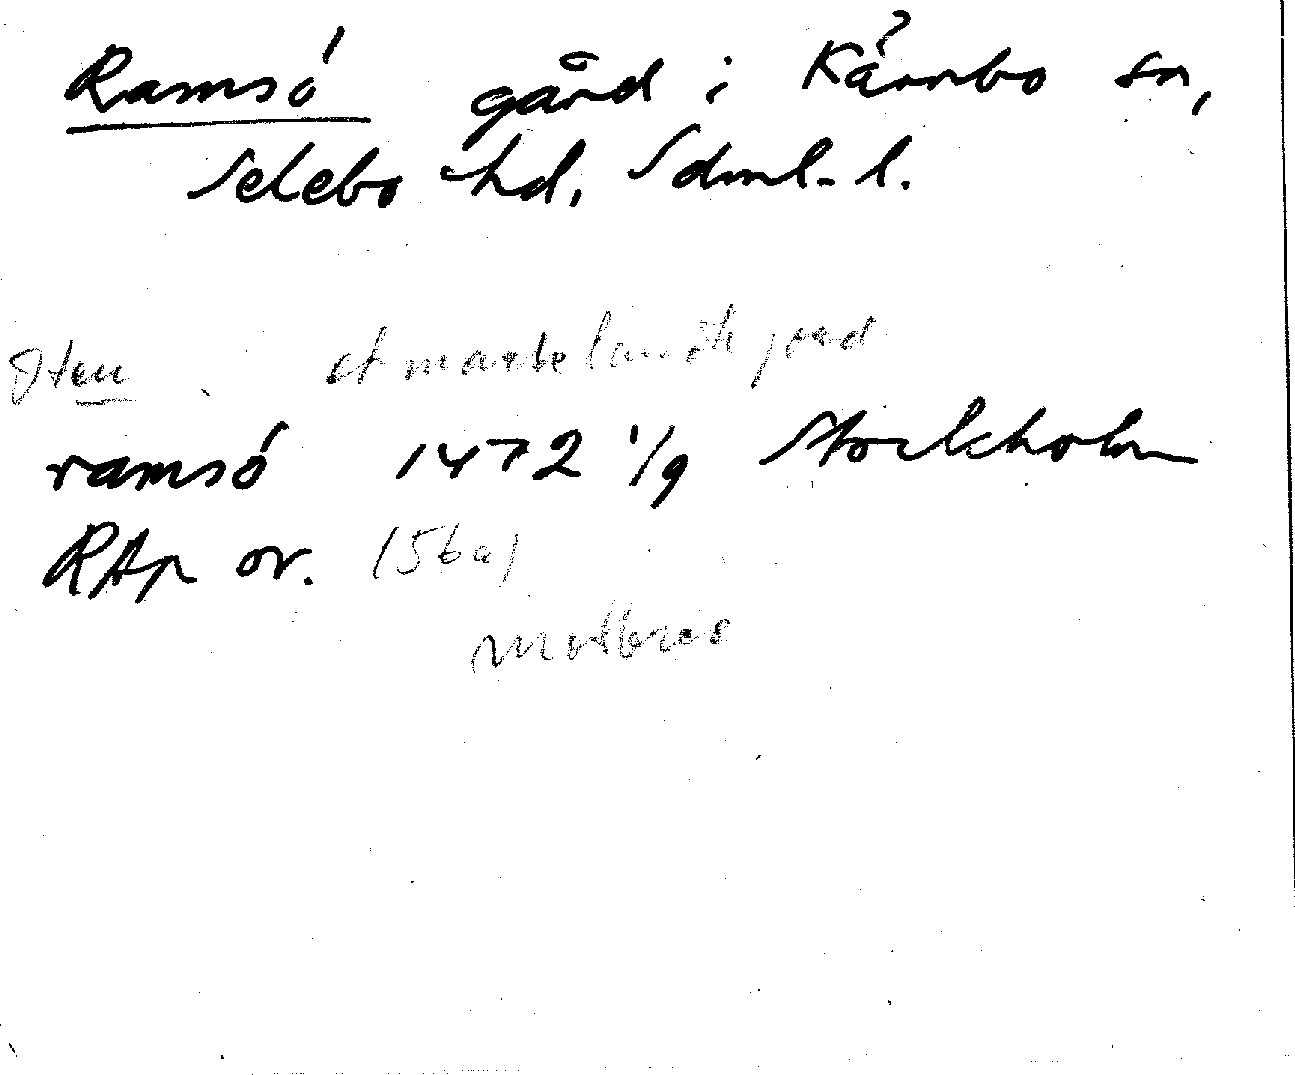 Ramsó gård i Kärnbo sn,
Selebo hd, Sdml. l.
Item et markeland jord
ramsó 1472 1/9 Stockholm
RAp or. (56a)